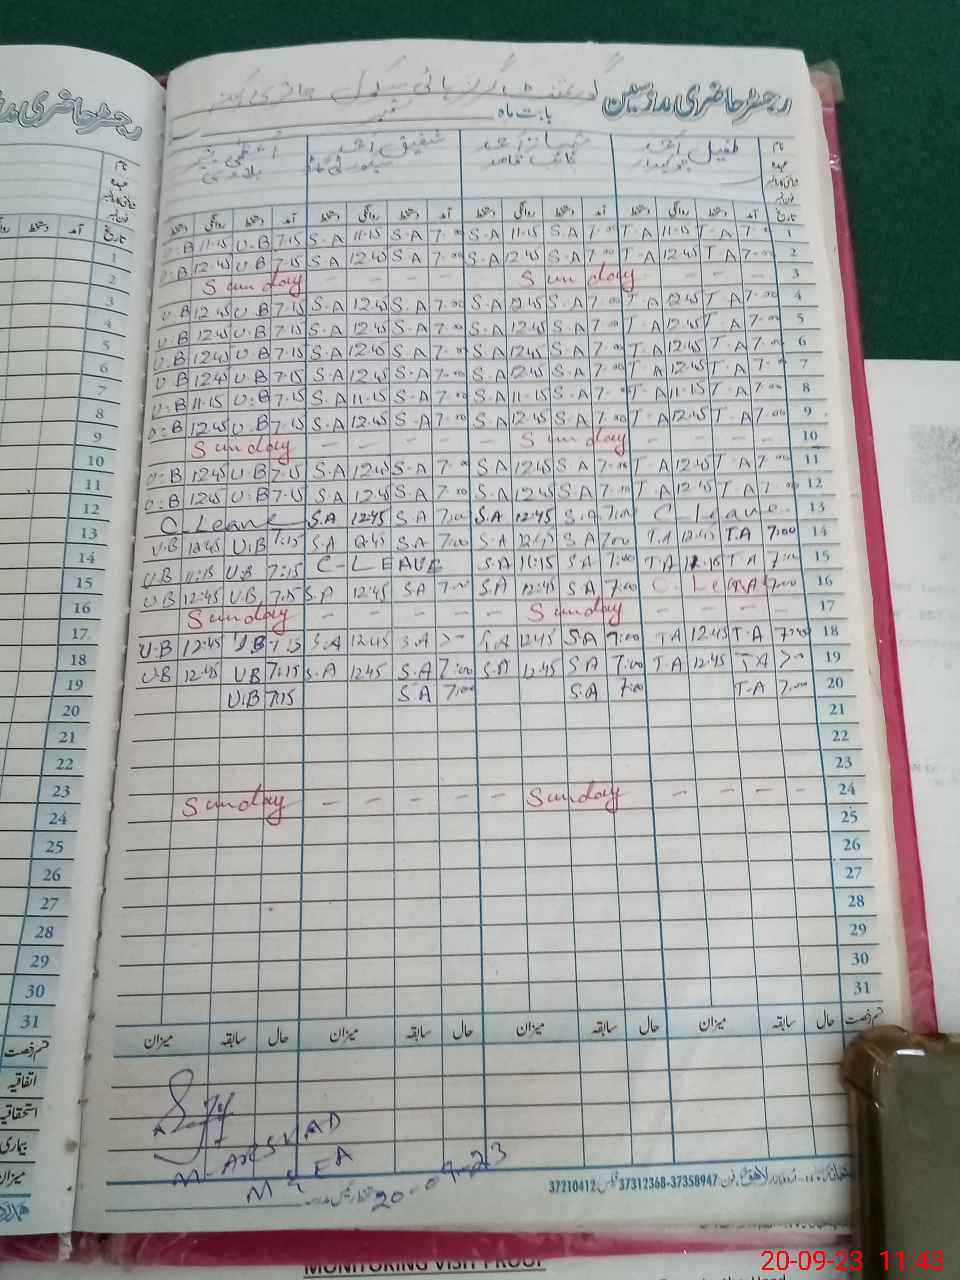 رجسٹر حاضری مدرسین گورنمنٹ گرلز ہائی سکول
بابت ماہ ستمبر
نام طفیل احمد شفیق احمد عظمیٰ بشیر
عہدہ چوکیدار نائب قاصد
تاریخ آمد دستخط روانگی دستخط آمد دستخط روانگی دستخط آمد دستخط روانگی دستخط آمد دستخط روانگی دستخط
U.B 11-15 U.B 7-15 S.A 11-15 S.A 7-00 S.A 11-15 S.A 7-00 T.A 11-15 T.A 7-00 1
U.B 12-45 U.B 7-15 S.A 12.45 S.A 7-00 S.A 12.45 S.A 7-00 T.A 12.45 T.A 7-00 2
Sunday - - - - - Sunday - - - - 3
U.B 12.45 U.B 7-15 S.A 12.45 S.A 7-00 S.A 12.45 S.A 7-00 T.A 12.45 T.A 7-00 4
U.B 12.45 U.B 7-15 S.A 12.45 S.A 7-00 S.A 12.45 S.A 7-00 T.A 12.45 T.A 7-00 5
U.B 12.45 U.B 7-15 S.A 12.45 S.A 7-00 S.A 12.45 S.A 7-00 T.A 12.45 T.A 7-00 6
U.B 12.45 U.B 7-15 S.A 12.45 S.A 7-00 S.A 12.45 S.A 7-00 T.A 12.45 T.A 7-00 7
U.B 11-15 U.B 7-15 S.A 11-15 S.A 7-00 S.A 11-15 S.A 7-00 T.A 11-15 T.A 7-00 8
U.B 12.45 U.B 7-15 S.A 12.45 S.A 7-00 S.A 12.45 S.A 7-00 T.A 12.45 T.A 7-00 9
Sunday - - - - - Sunday - - - - 10
U.B 12.45 U.B 7-15 S.A 12.45 S.A 7-00 S.A 12.45 S.A 7-00 T.A 12.45 T.A 7-00 11
U.B 12.45 U.B 7-15 S.A 12.45 S.A 7-00 S.A 12.45 S.A 7-00 T.A 12.45 T.A 7-00 12
C Leave S.A 12:45 S.A 7:00 S.A 12:45 S.A 7:00 C Leave 13
U.B 12:45 U.B 7:15 S.A 12:45 S.A 7:00 S.A 12:45 S.A 7:00 T.A 12:45 T.A 7:00 14
U.B 11:15 U.B 7:15 C-LEAVE S.A 11:15 S.A 7:00 T.A 11:15 T.A 7:00 15
U.B 12:45 U.B 7:15 S.A 12:45 S.A 7:00 S.A 12:45 S.A 7:00 C. Leave 7:00 16
Sunday - - - - - Sunday - - - - 17
U.B 12:45 U.B 7:15 S.A 12:45 S.A 7:00 S.A 12:45 S.A 7:00 T.A 12:45 T.A 7:00 18
U.B 12:45 U.B 7:15 S.A 12:45 S.A 7:00 S.A 12:45 S.A 7:00 T.A 12:45 T.A 7:00 19
U.B 7:15 S.A 7:00 S.A 7:00 T.A 7:00 20
21
22
23
Sunday - - - - - Sunday - - - - 24
25
26
27
28
29
30
31
قسم رخصت حال سابقہ میزان حال سابقہ میزان حال سابقہ میزان حال سابقہ میزان
M. ARSHAD
MEA
20-09-23
37210412 فیکس 37312368-37358947 فون:
رجسٹر حاضری
تاریخ آمد دستخط
1
2
3
4
5
6
7
8
9
10
11
12
13
14
15
16
17
18
19
20
21
22
23
24
25
26
27
28
29
30
31
قسم رخصت
اتفاقیہ
استحقاقیہ
بیماری
میزان
MONITORING VISIT PROOF
20-09-23 11:43